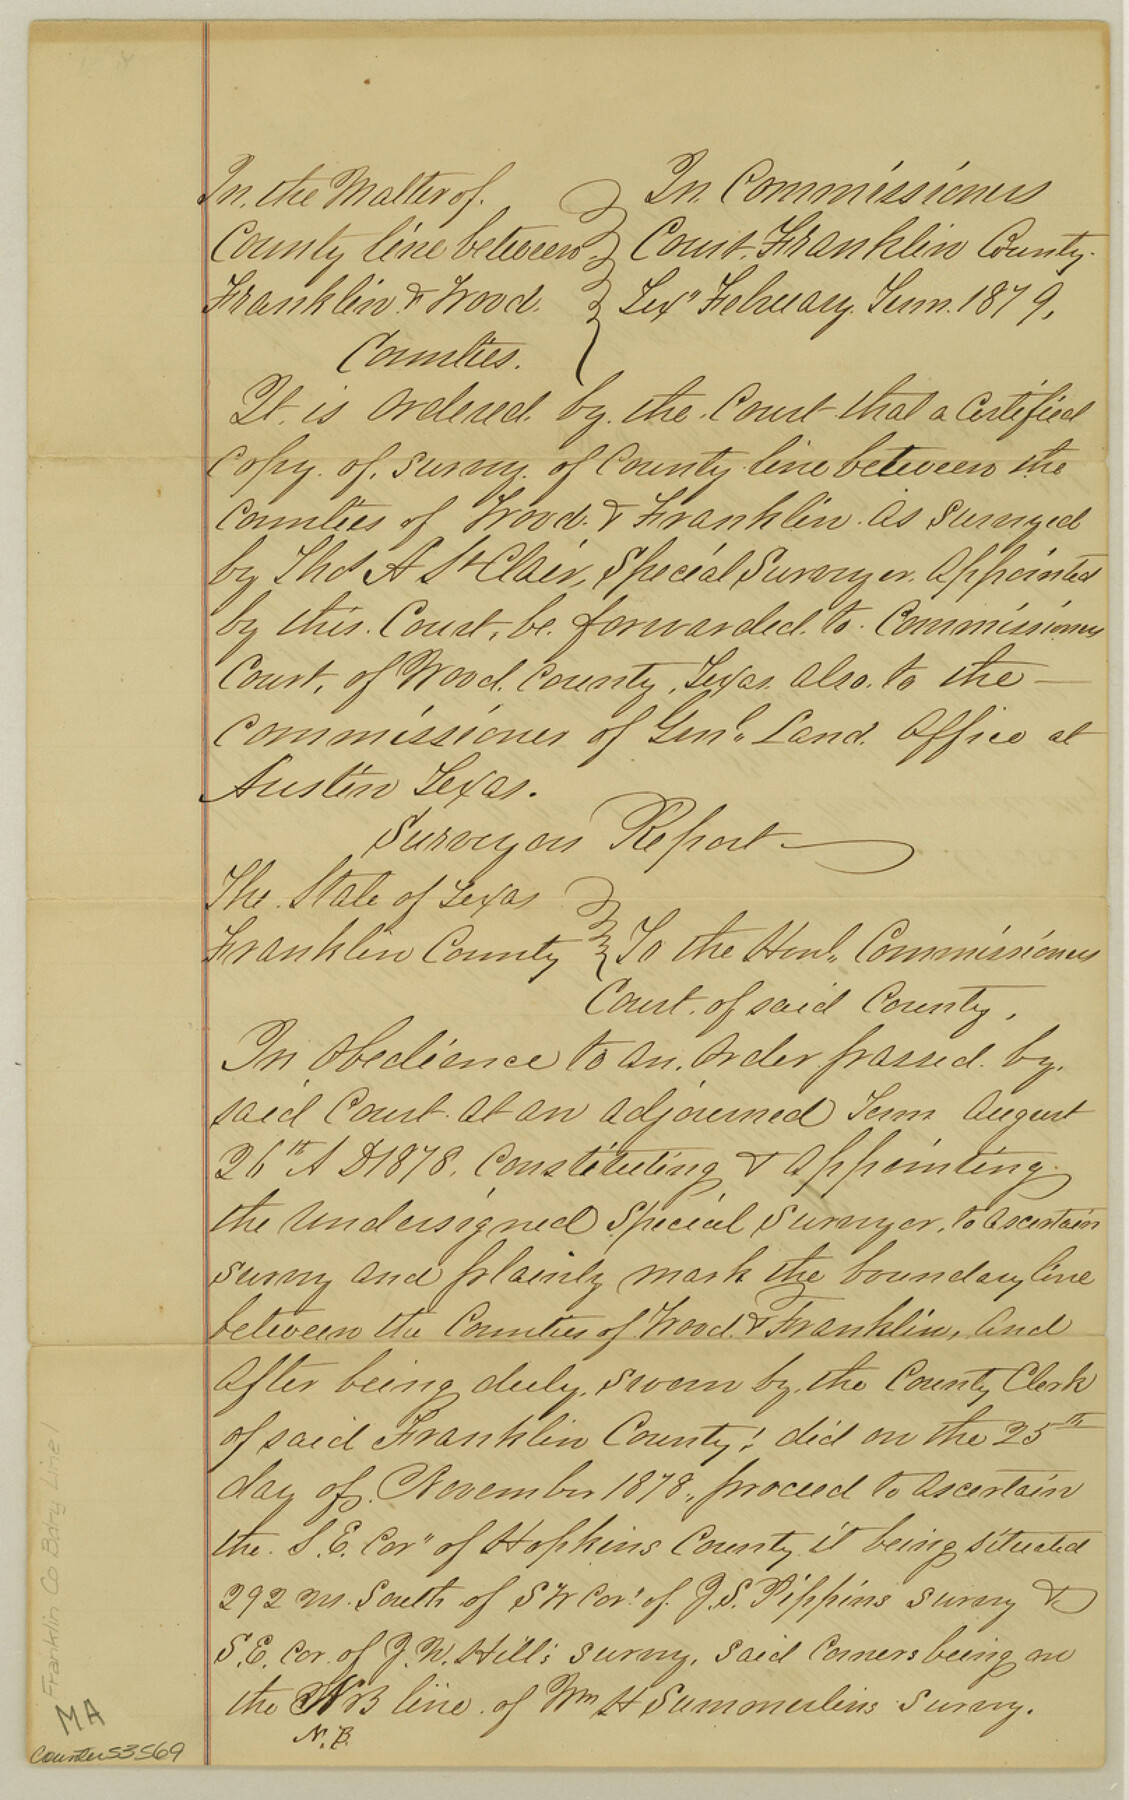 In the Matter of
County line between
Franklin & Wood
Counties.
In Commissioners
Court, Franklin County
Texs February Term 1879,
It is ordered by the Court that a certified
Copy of survey of County line between the
Counties of Wood & Franklin as surveyed
by Thos A St Clair, Special Surveyor appointed
by this Court, be forwarded to Commissioners
Court, of Wood County, Texas also to the —
Commissioner of Genl Land Office at
Austin Texas.
Surveyors Report
The State of Texas
Franklin County
To the Honl. Commissioners
Court of said County,
In Obedience to an order passed by
said Court at an adjourned Term August
26th A D 1878, Constituting & appointing
the undersigned Special Surveyor, to ascertain
survey and plainly mark the boundary line
between the Counties of Wood & Franklin, and
after being duly sworn by the County Clerk
of said Franklin County; did on the 25th
day of November 1878, proceed to ascertain
the S.E. Cor" of Hopkins County it being situated
292 vrs. South of S W Cor. of J.S. Pippins survey &
S.E. Cor. of J.N. Hill's survey, said corners being on
the B line of Wm H Summerlins Survey.
N.B.
Franklin Co Bdry Line 1
MA
Counter 53569